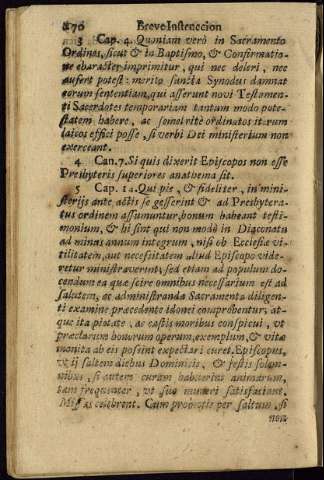 270 Breve Instruccion
3 Cap. 4. Quoniam verò in Sacramento
Ordinis, sicut & in Baptismo, & Confirmatio-
ne character imprimitur, qui nec deleri, nec
aufert potest: merito sancta Synodus damnat
eorum sententiam, qui asserunt novi Testamen-
ti Sacerdotes temporariam tantum modo pote-
statem habere, ac semel rite ordinatos iterum
laicos effici posse, si verbi Dei ministerium non
exerceant.
4 Can. 7. Si quis dixerit Episcopos non esse
Presbyteris superiores anathema sit.
5 Cap. 14. Qui piè, & fideliter, in mini-
sterijs ante actis se gesserint & ad Presbytera-
tus ordinem assumuntur, bonum habeant testi-
monium, & hi sint qui non modò in Diaconatu
ad minus annum integrum, nisi ob Ecclesiæ vi-
tilitatem, aut necessitatem aliud Episcopo vide-
retur ministraverunt, sed etiam ad populum do-
cendum ea quæ scire omnibus necessarium est ad
salutem, ac administranda Sacramenta diligen-
ti examine præcedente idonei comprobentur, at-
que ita pietate, ac castis moribus conspicui, vt
præclarum bonorum operum, exemplum, & vitæ
monita ab eis possint expectari curet Episcopus,
vt ij saltem diebus Dominicis, & festis solem-
nibus, si autem curam habuerint animarum,
tam frequenter, vt suo muneri satisfaciant,
Missas celebrent. Cum promotis per saltum, si
non